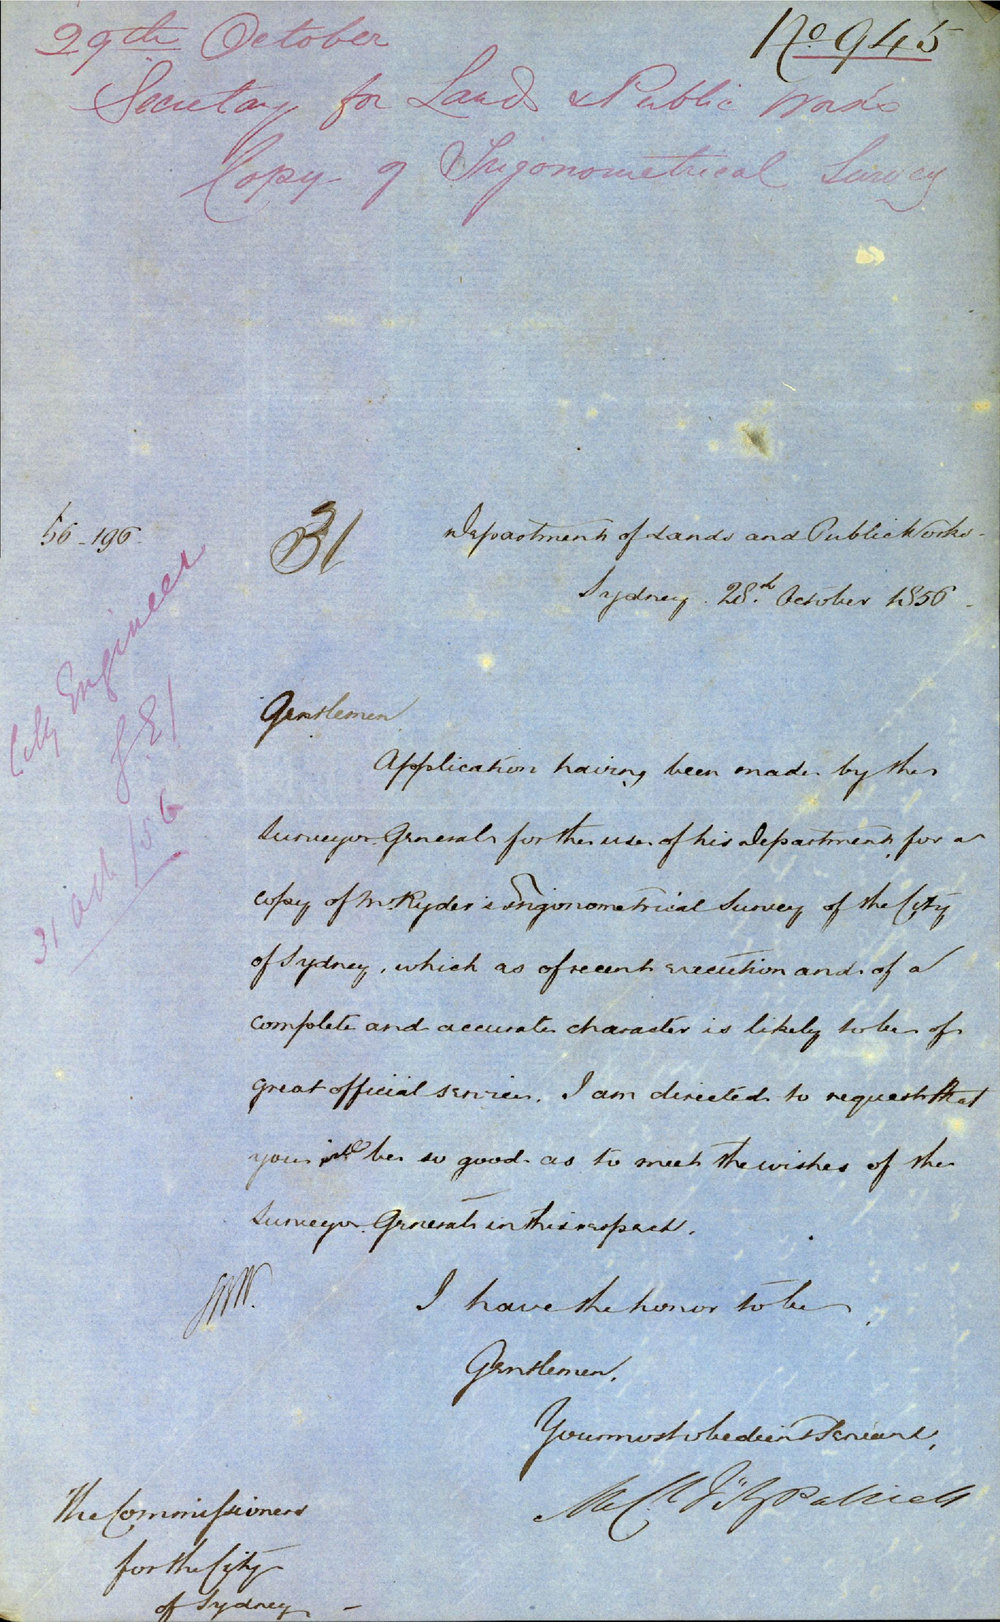 29th October
No 945
Secretary for Lands & Public Works
Copy of Trigonometrical Survey
56-196
31
Department of Lands and Public Works
Sydney. 28th October 1856.
City Engineer
31 Oct /56
Gentlemen
Application having been made by the
Surveyor General for the use of his Department, for a
copy of Mr. Ryder's Trigonometrical Survey of the City
of Sydney, which as of recent execution and of a
complete and accurate character is likely to be of
great official service. I am directed to request that
you will be so good as to meet the wishes of the
Surveyor General in this respect.
I have the honor to be,
Gentlemen,
Your most obedient Servant,
Mich. Fitzpatrick
The Commissioners
for the City
of Sydney -